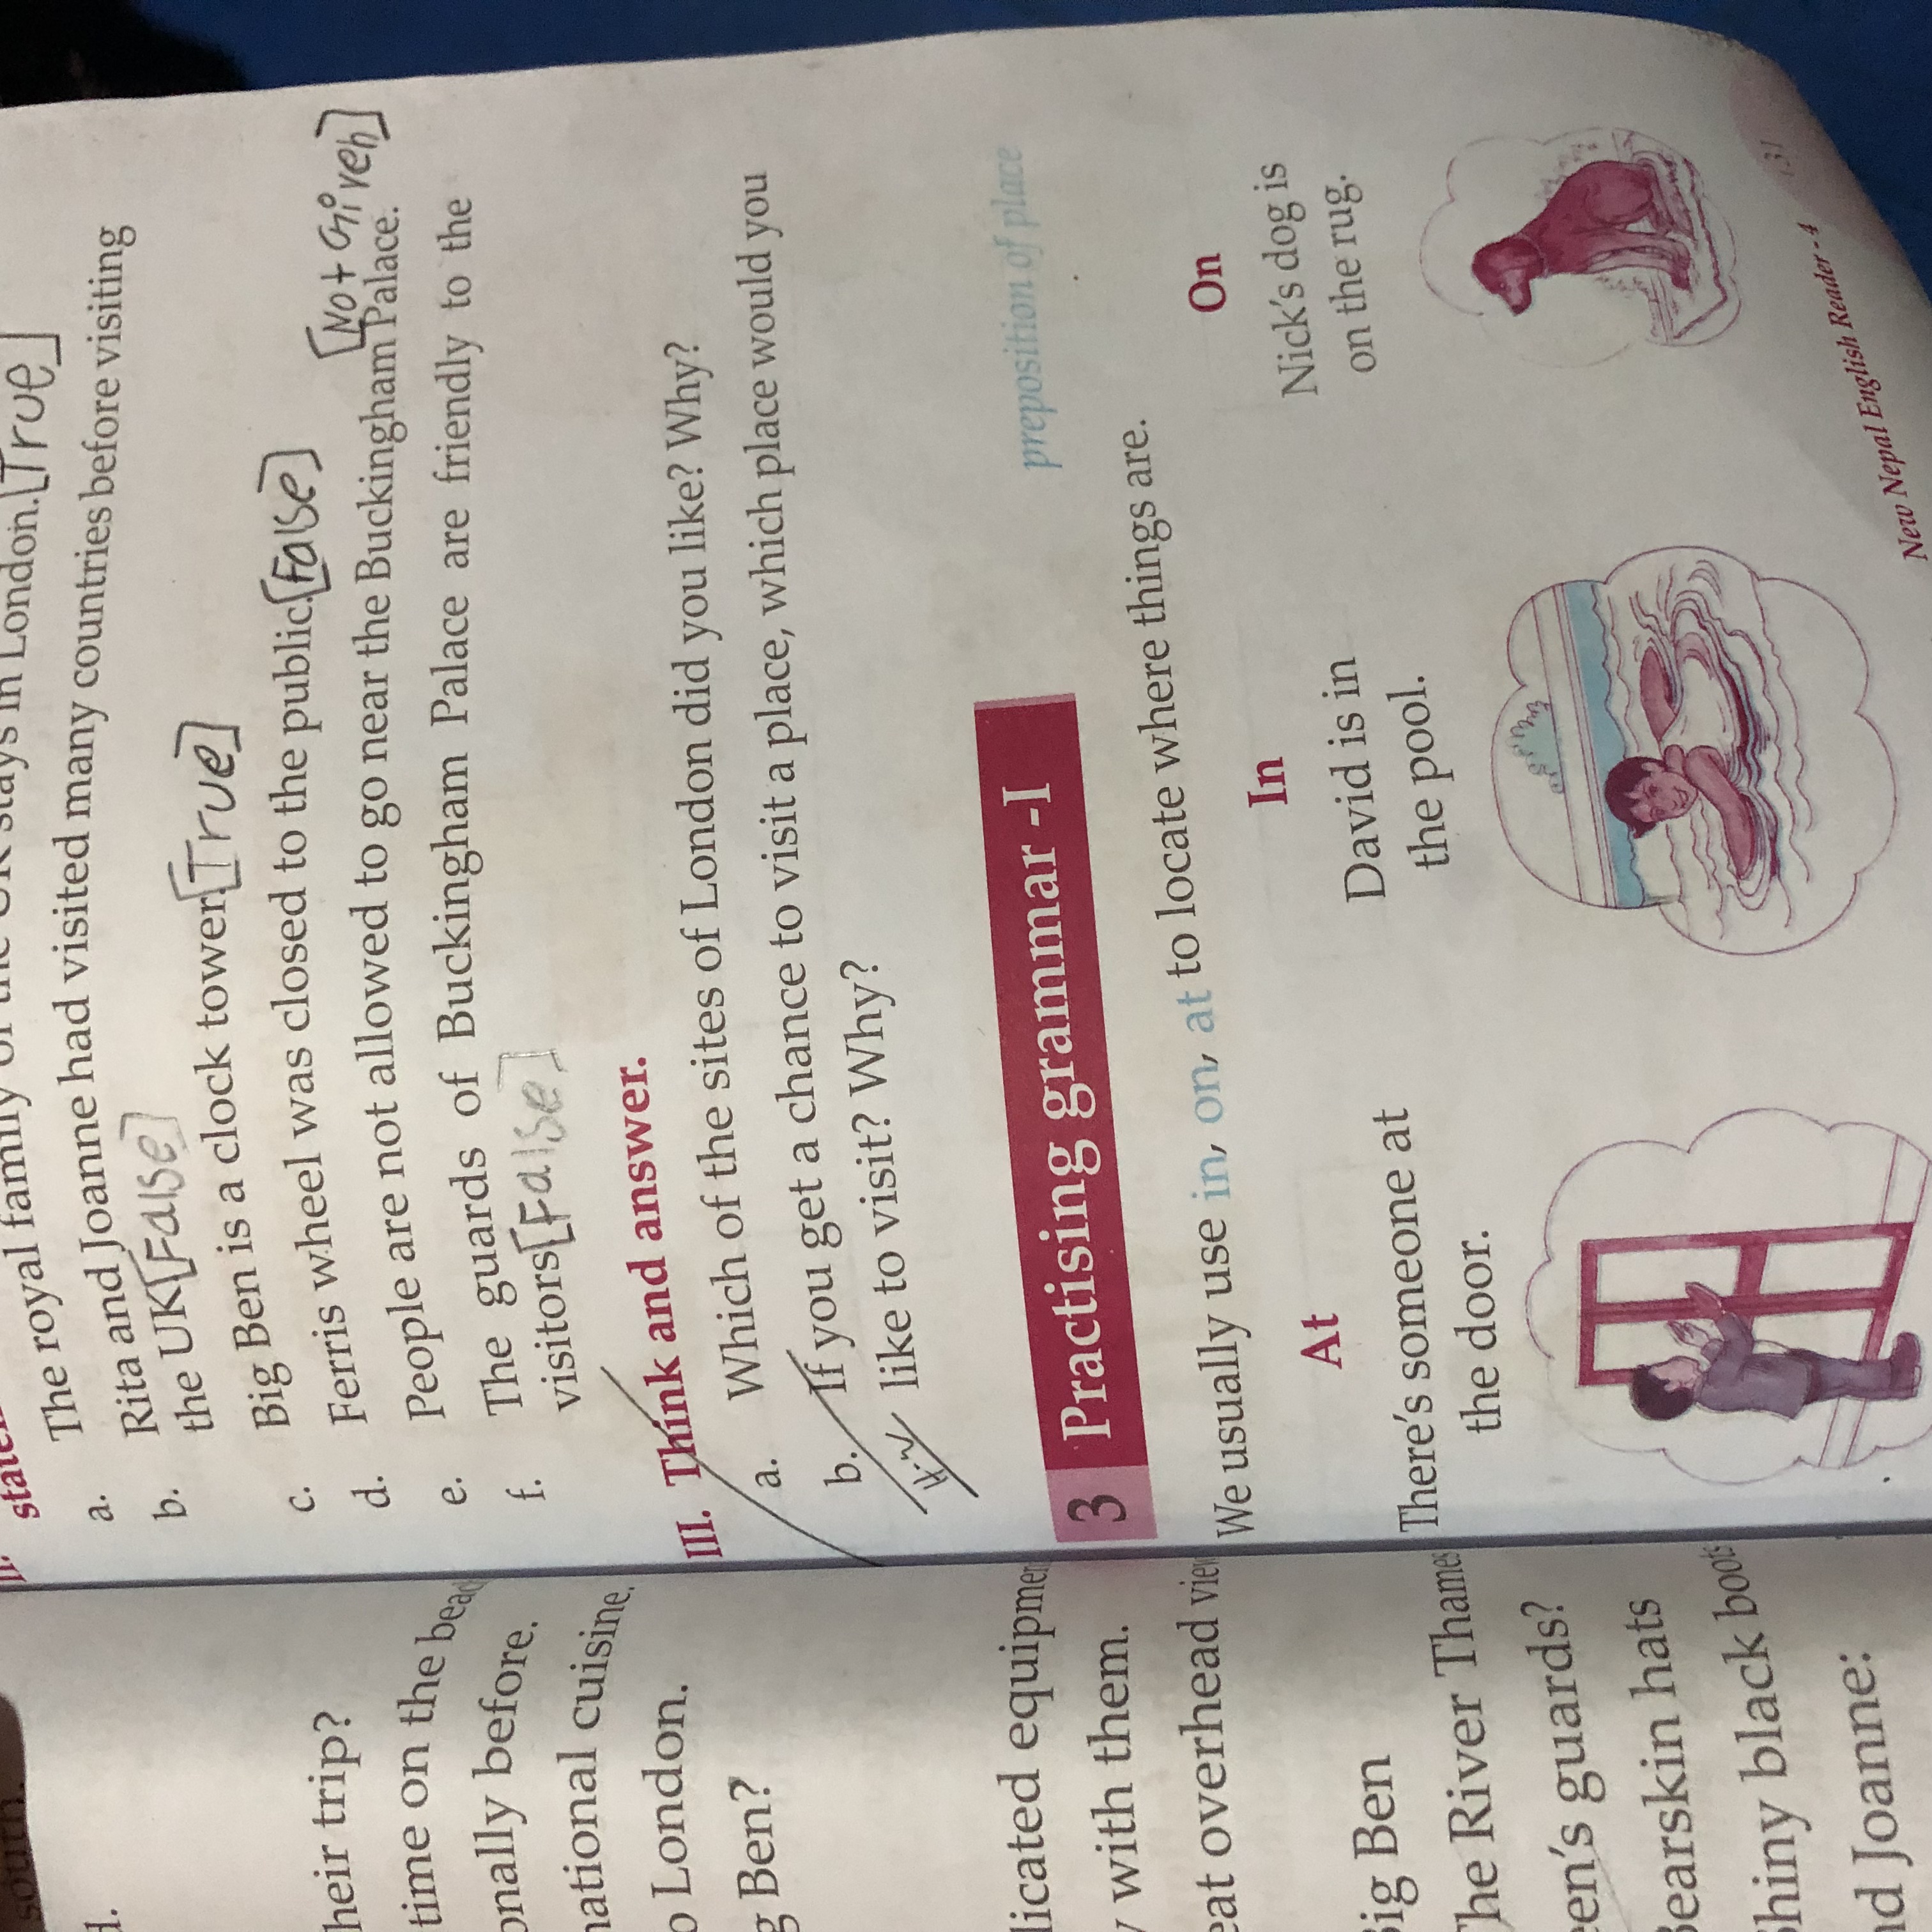 a. The royal family of the UK stays in London. [True]
b. Rita and Joanne had visited many countries before visiting
the UK [False]
c. Big Ben is a clock tower. [True]
d. Ferris wheel was closed to the public. [False]
[Not Given]
e. People are not allowed to go near the Buckingham Palace.
f. The guards of Buckingham Palace are friendly to the
visitors [False]
III. Think and answer.
a. Which of the sites of London did you like? Why?
b. If you get a chance to visit a place, which place would you
H.W like to visit? Why?
3 Practising grammar -I
preposition of place
We usually use in, on, at to locate where things are.
At
There's someone at
the door.
In
David is in
the pool.
On
Nick's dog is
on the rug.
New Nepal English Reader - 4
131
d.
heir trip?
time on the
onally before.
national cuisine.
o London.
g Ben?
licated
y with them.
eat overhead view
Big Ben
The River Thames
een's guards?
Bearskin hats
shiny black boots
nd Joanne: